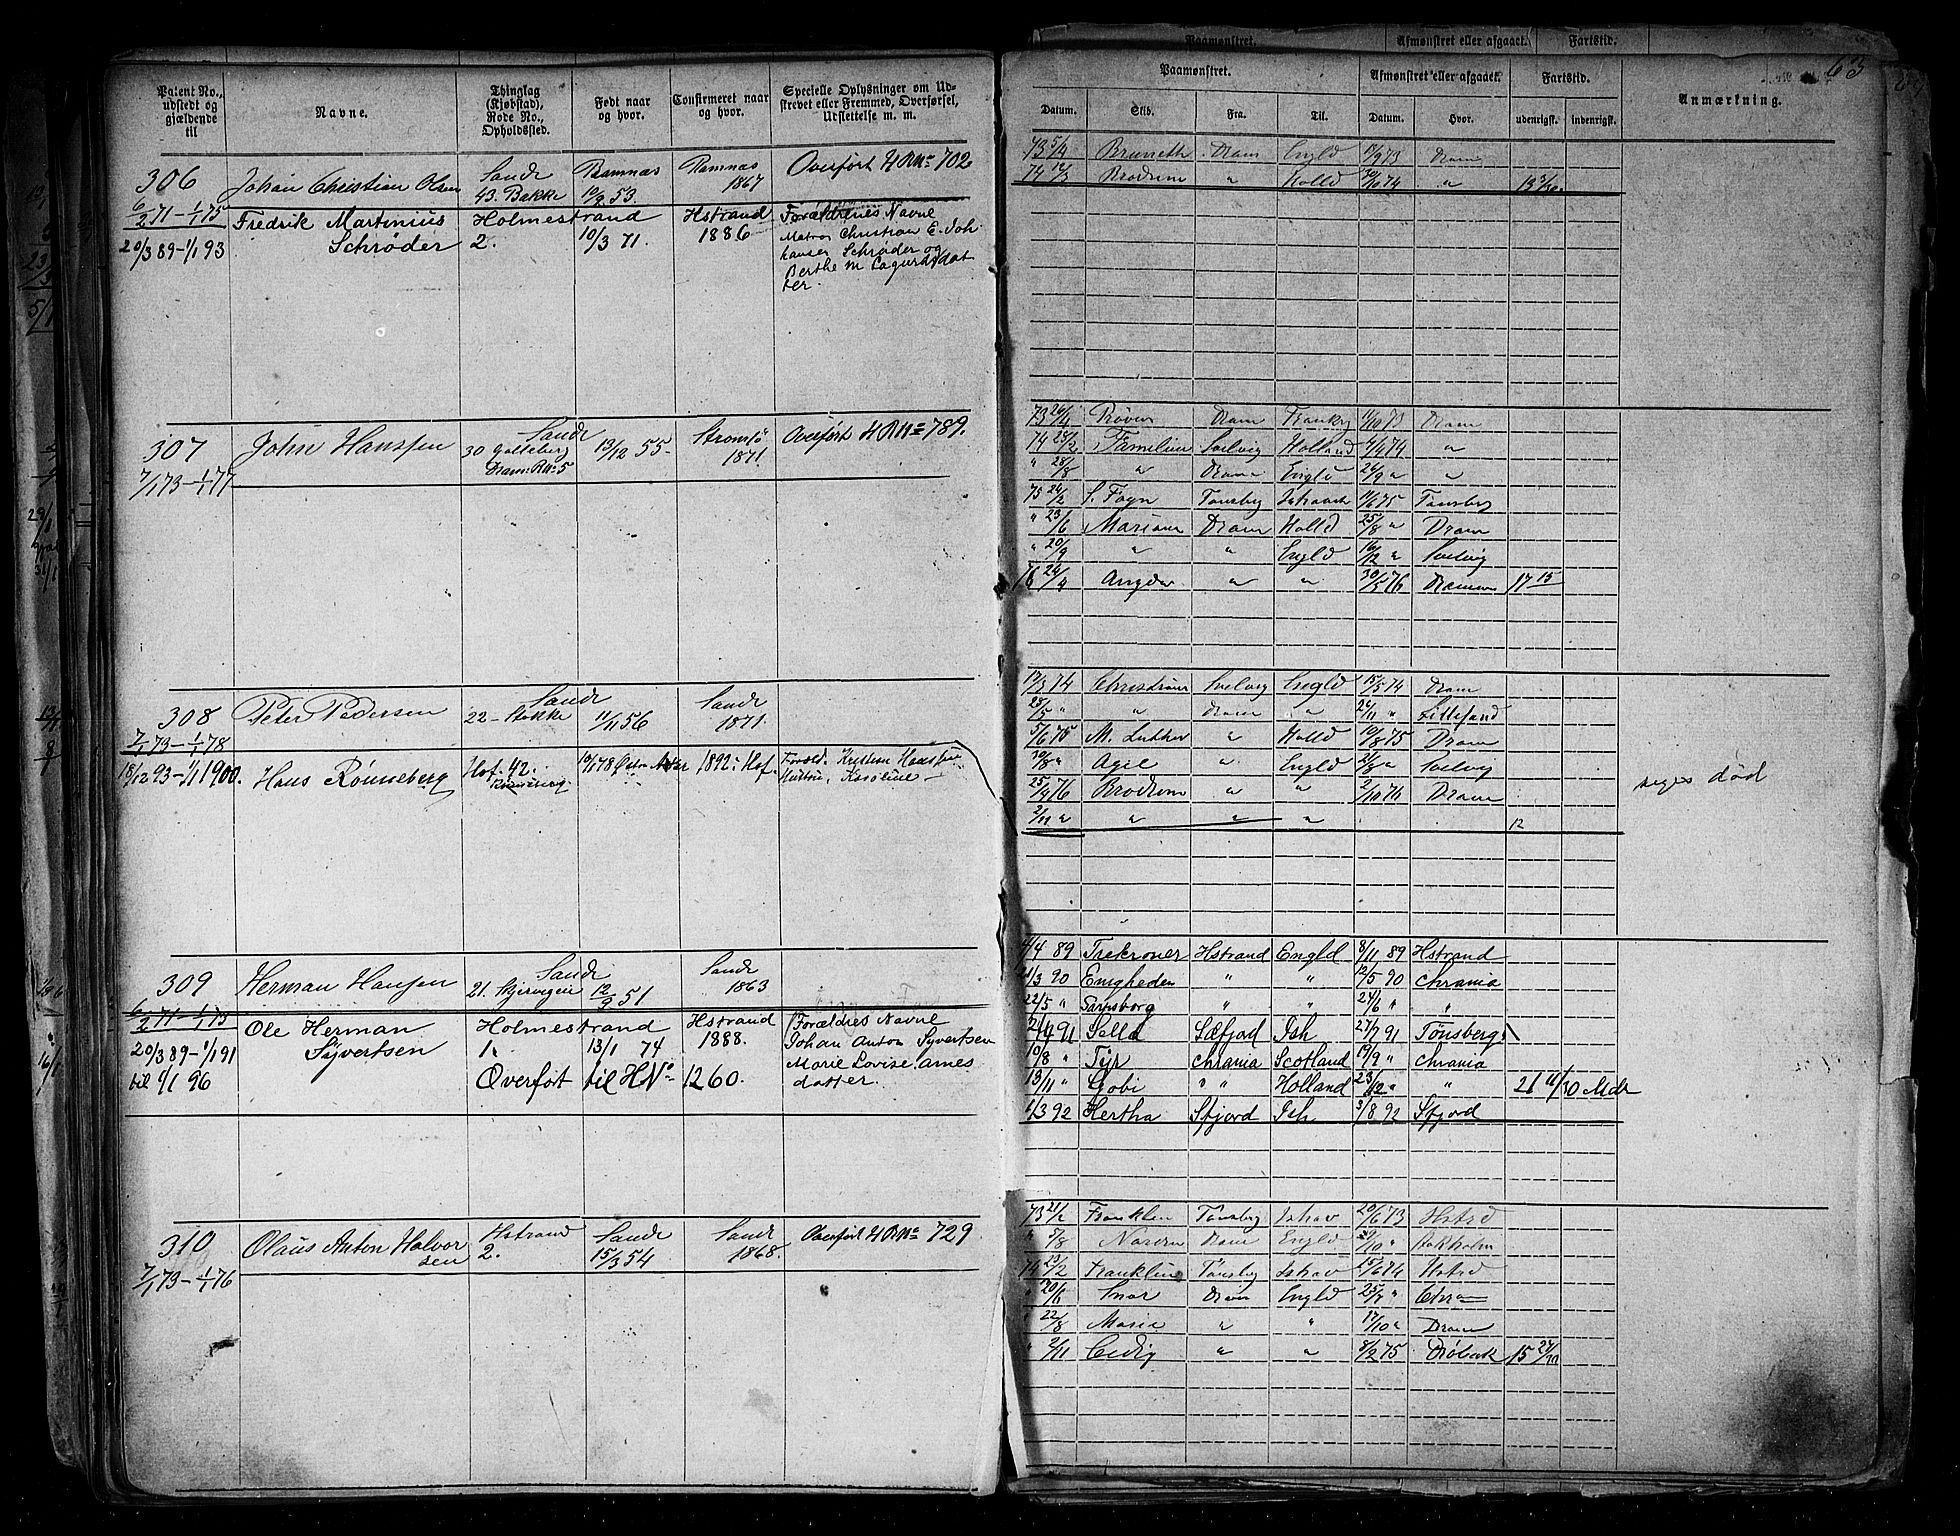 Patent No., udstedt og gjældende til
Navne.
Thinglag (Kjøbstad), Rode No., Opholdssted.
Født naar og hvor.
Confirmeret naar og hvor.
Specielle Oplysninger om Udstrevet eller Fremmed, Overførsel, Udslettelse m. m.
306
6/2 71 – 1/1 75
Johan Christian Olsen
Sande
43. Bakke
Ramnæs
10/2 53.
Ramnæs
1867
Overført H R No 702
20/3 89 – 1/1 93
Fredrik Martinius
Schrøder
Holmestrand
2.
10/3 71.
Hstrand
1886
Forældrenes Navne
Matros Christian E. Joh-
hansen Schrøder og
Berthe M
ter.
307
7/1 73 – 1/1 77
John Hanssen
Sande
30
Dram: R No 5
13/12 55
Strømsø
1871.
Overført H R No 789.
308
7/1 73 – 1/1 78
Peter Pedersen
Sande
22 – Stokke
11/11 56
Sande
1871.
18/12 93 – 1/1 1900.
Hans Rønneberg
Hof. 42.
10/11 78
1892. Hof.
Foræld. Kristian Hansen
Hustru, Karoline –
309
6/2 71 – 1/1 75
Herman Hansen
Sande
21.
12/9 51
Sande
1863
20/3 89 – 1/1 91
til 1/1 96
Ole Herman
Syvertsen
Holmestrand
1.
13/1 74
Hstrand
1888.
Forældres Navne
Johan Anton Syvertsen
Marie Lovise Arnes
datter.
Overført til H No 1260.
310
7/1 73 – 1/1 76
Olaus Anton Halvor
sen
Hstrand
2.
Sande
15/3 54
Sande
1868.
Overført H R No 729
Paamønstret.
Afmønstret eller afgaaet.
Fartstid.
63
Paamønstret.
Afmønstret eller afgaaet.
Fartstid.
Anmærkning.
Datum.
Skib.
Fra.
Til.
Datum.
Hvor.
udenrigsk.
indenrigsk.
73 5/4 Dram Engld 73 Dram
74 12/3 Brodrene " Holld 74 "
73 26/4 Prøven Dram Dram
74 28/2 Familien Svelvig Holland 74 "
" 28/8 " Dram Engld 24/9 " "
75 24/2 S. Foyn Tønsbg 11/6 75 Tønsbg
" 23/6 Mariane Dram Holld 25/8 " Dram
" 20/9 " " Engld 16/12 " Svelvig
76 24/4 " " 30/5 76 Drammen 17 15
17/3 74 Christiane Svelvig Engld 15/5 74 Dram
25/5 " " Dram " 26/11 " Lillesand
5/6 75 M. Luther " Holld 10/8 75 Dram
30/8 " Agil " Engld " Svelvig
25/4 76 Brodrene " " 2/10 76 Dram
2/11 " " " " 12
siges død
4/4 89 Trekroner Hstrand Engld 8/11 89 Hstrand
21/3 90 Emigheden " " 12/5 90 Chrania
22/5 " Sarpsborg " " 24/6 " "
21/4 91 Sella Sæfjord Ish 27/7 91 Tønsberg
10/8 " Tyr Chrania Scotland 19/9 " Chrania
13/11 " Gobi " " Holland 23/12 " " 21 11/30 Mdr
1/3 92 Hertha Sfjord Ish 3/8 92 Sfjord
73 21/2 Franklin Tønsbg Ishav 20/6 73 Hstrd
" 7/8 Norden Dram Engld 29/10 " Stokholm
74 23/2 Franklin Tønsbg Ishav 15/6 74 Hstrd
" 30/6 Snar Dram Engld 25/7 " Chra
" 22/8 Maria " " 17/10 " Dram
" 2/11 Cedig " " 8/2 75 Drøbak 15 27/30